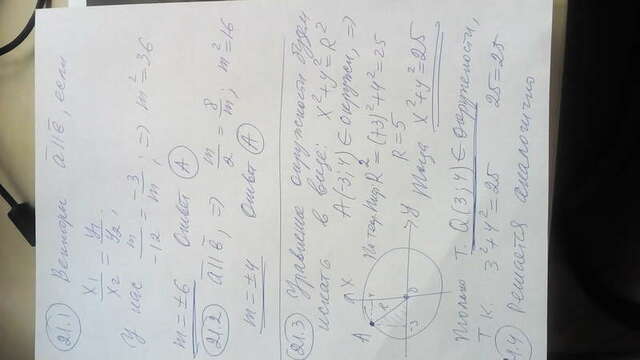 21.1 Векторы a̅||b̅, если
x₁/x₂ = y₁/y₂;
У нас m/-12 = -3/m; => m²=36
m = ±6 Ответ А
21.2 a̅||b̅, => m/2 = 8/m; m²=16
m = ±4 Ответ А
21.3 Уравнение окружности будем
искать в виде: x²+y²=R²
A(-3;4) ∈ окружн, =>
По теор. Пиф: R² = (+3)²+4²=25
R = 5
Тогда x²+y²=25
A X R -3 0 Y
Только т. Q(3;4) ∈ окружности,
т.к. 3²+4²=25 25=25
21.4 Решается аналогично